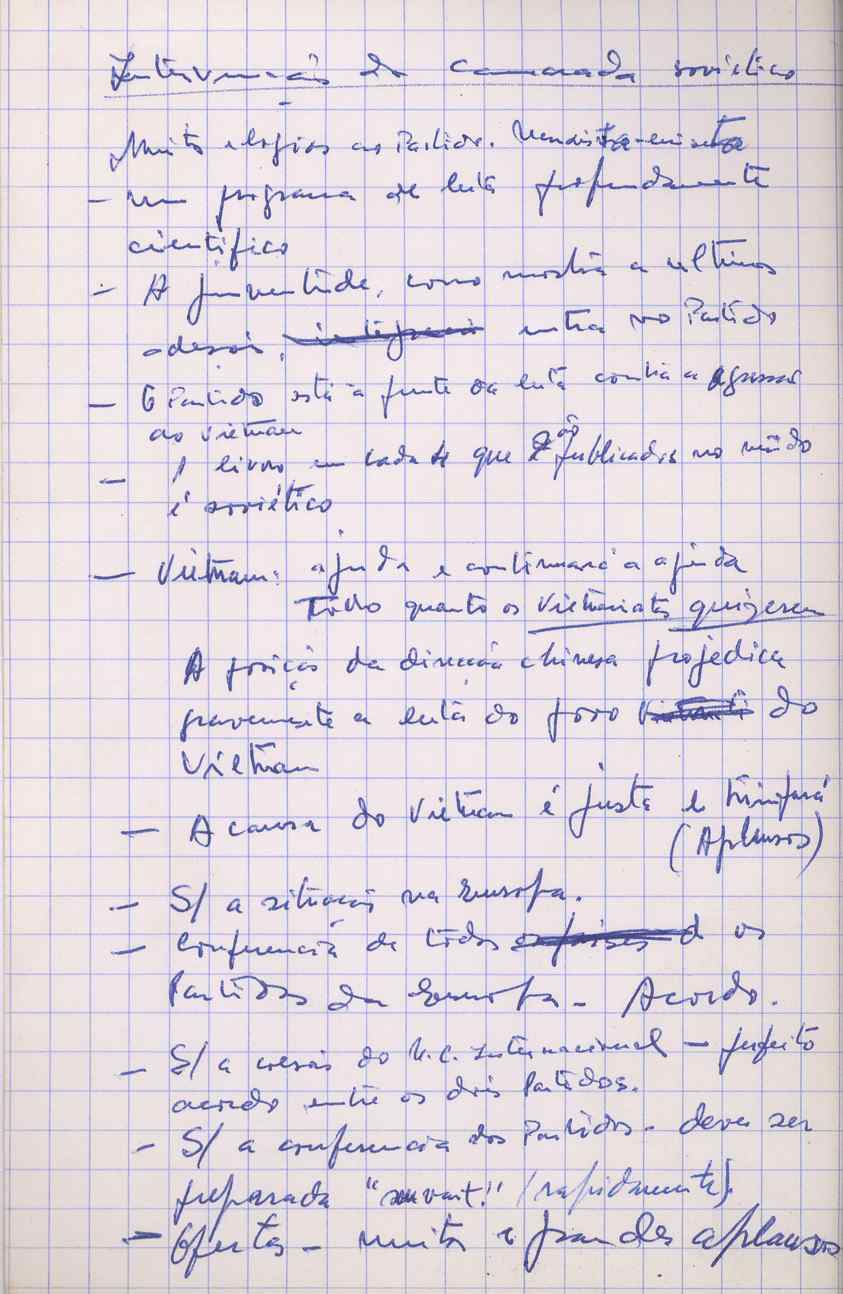 Intervenção do camarada soviético
Muitos elogios ao Partido.
- um programa de luta profundamente
científico
- A juventude, como mostra a ultimos
adesões, entra no Partido
- O Partido está à frente da luta contra a agressão
ao Vietnam
- 1 livro em cada 4 que são publicados no mundo
é soviético
- Vietnam: ajuda e continuará a ajuda
Tudo quanto os vietnamitas quizerem
A posição da direcção chinesa projedica
gravemente a luta do povo do
Vietnam
- A causa do Vietnam é justa e triunfará
(Aplausos)
- S/ a situação na Europa.
- Conferencia de todos os
Partidos da Europa - Acordo.
- S/ a coesão do M.C. Internacional - perfeito
acordo entre os dois Partidos.
- S/ a conferencia dos Partidos - deve ser
preparada (rapidamente).
- Ofertas - muitos e grandes aplausos